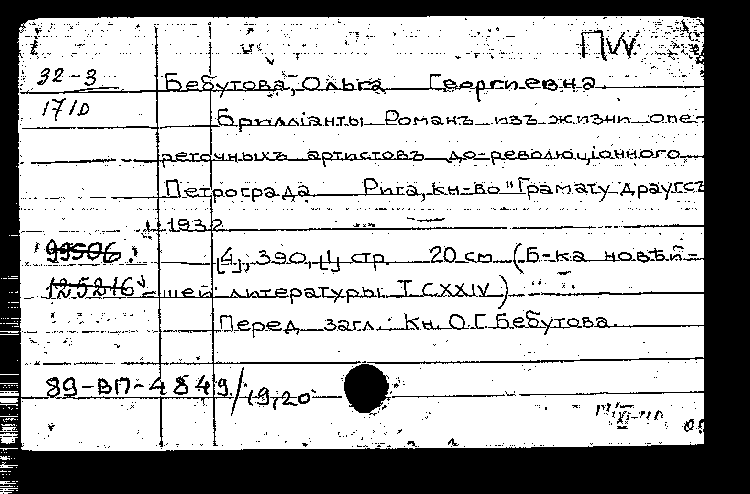 ПW
32-3
Бебутова, Ольга Георгиевна.
17/0
Брилліанты Романъ изъ жизни опе-
реточныхъ артистовъ до-революціонного
Петрограда Рига, кн-во "Грамату драугсъ
1932
99506
[4], 390, [1] стр. 20 см (Б-ка новѣй-
125216
шей литературы Т. CXXIV)
Перед загл.: Кн. О.Г. Бебутова.
89-ВП-4849/19,20